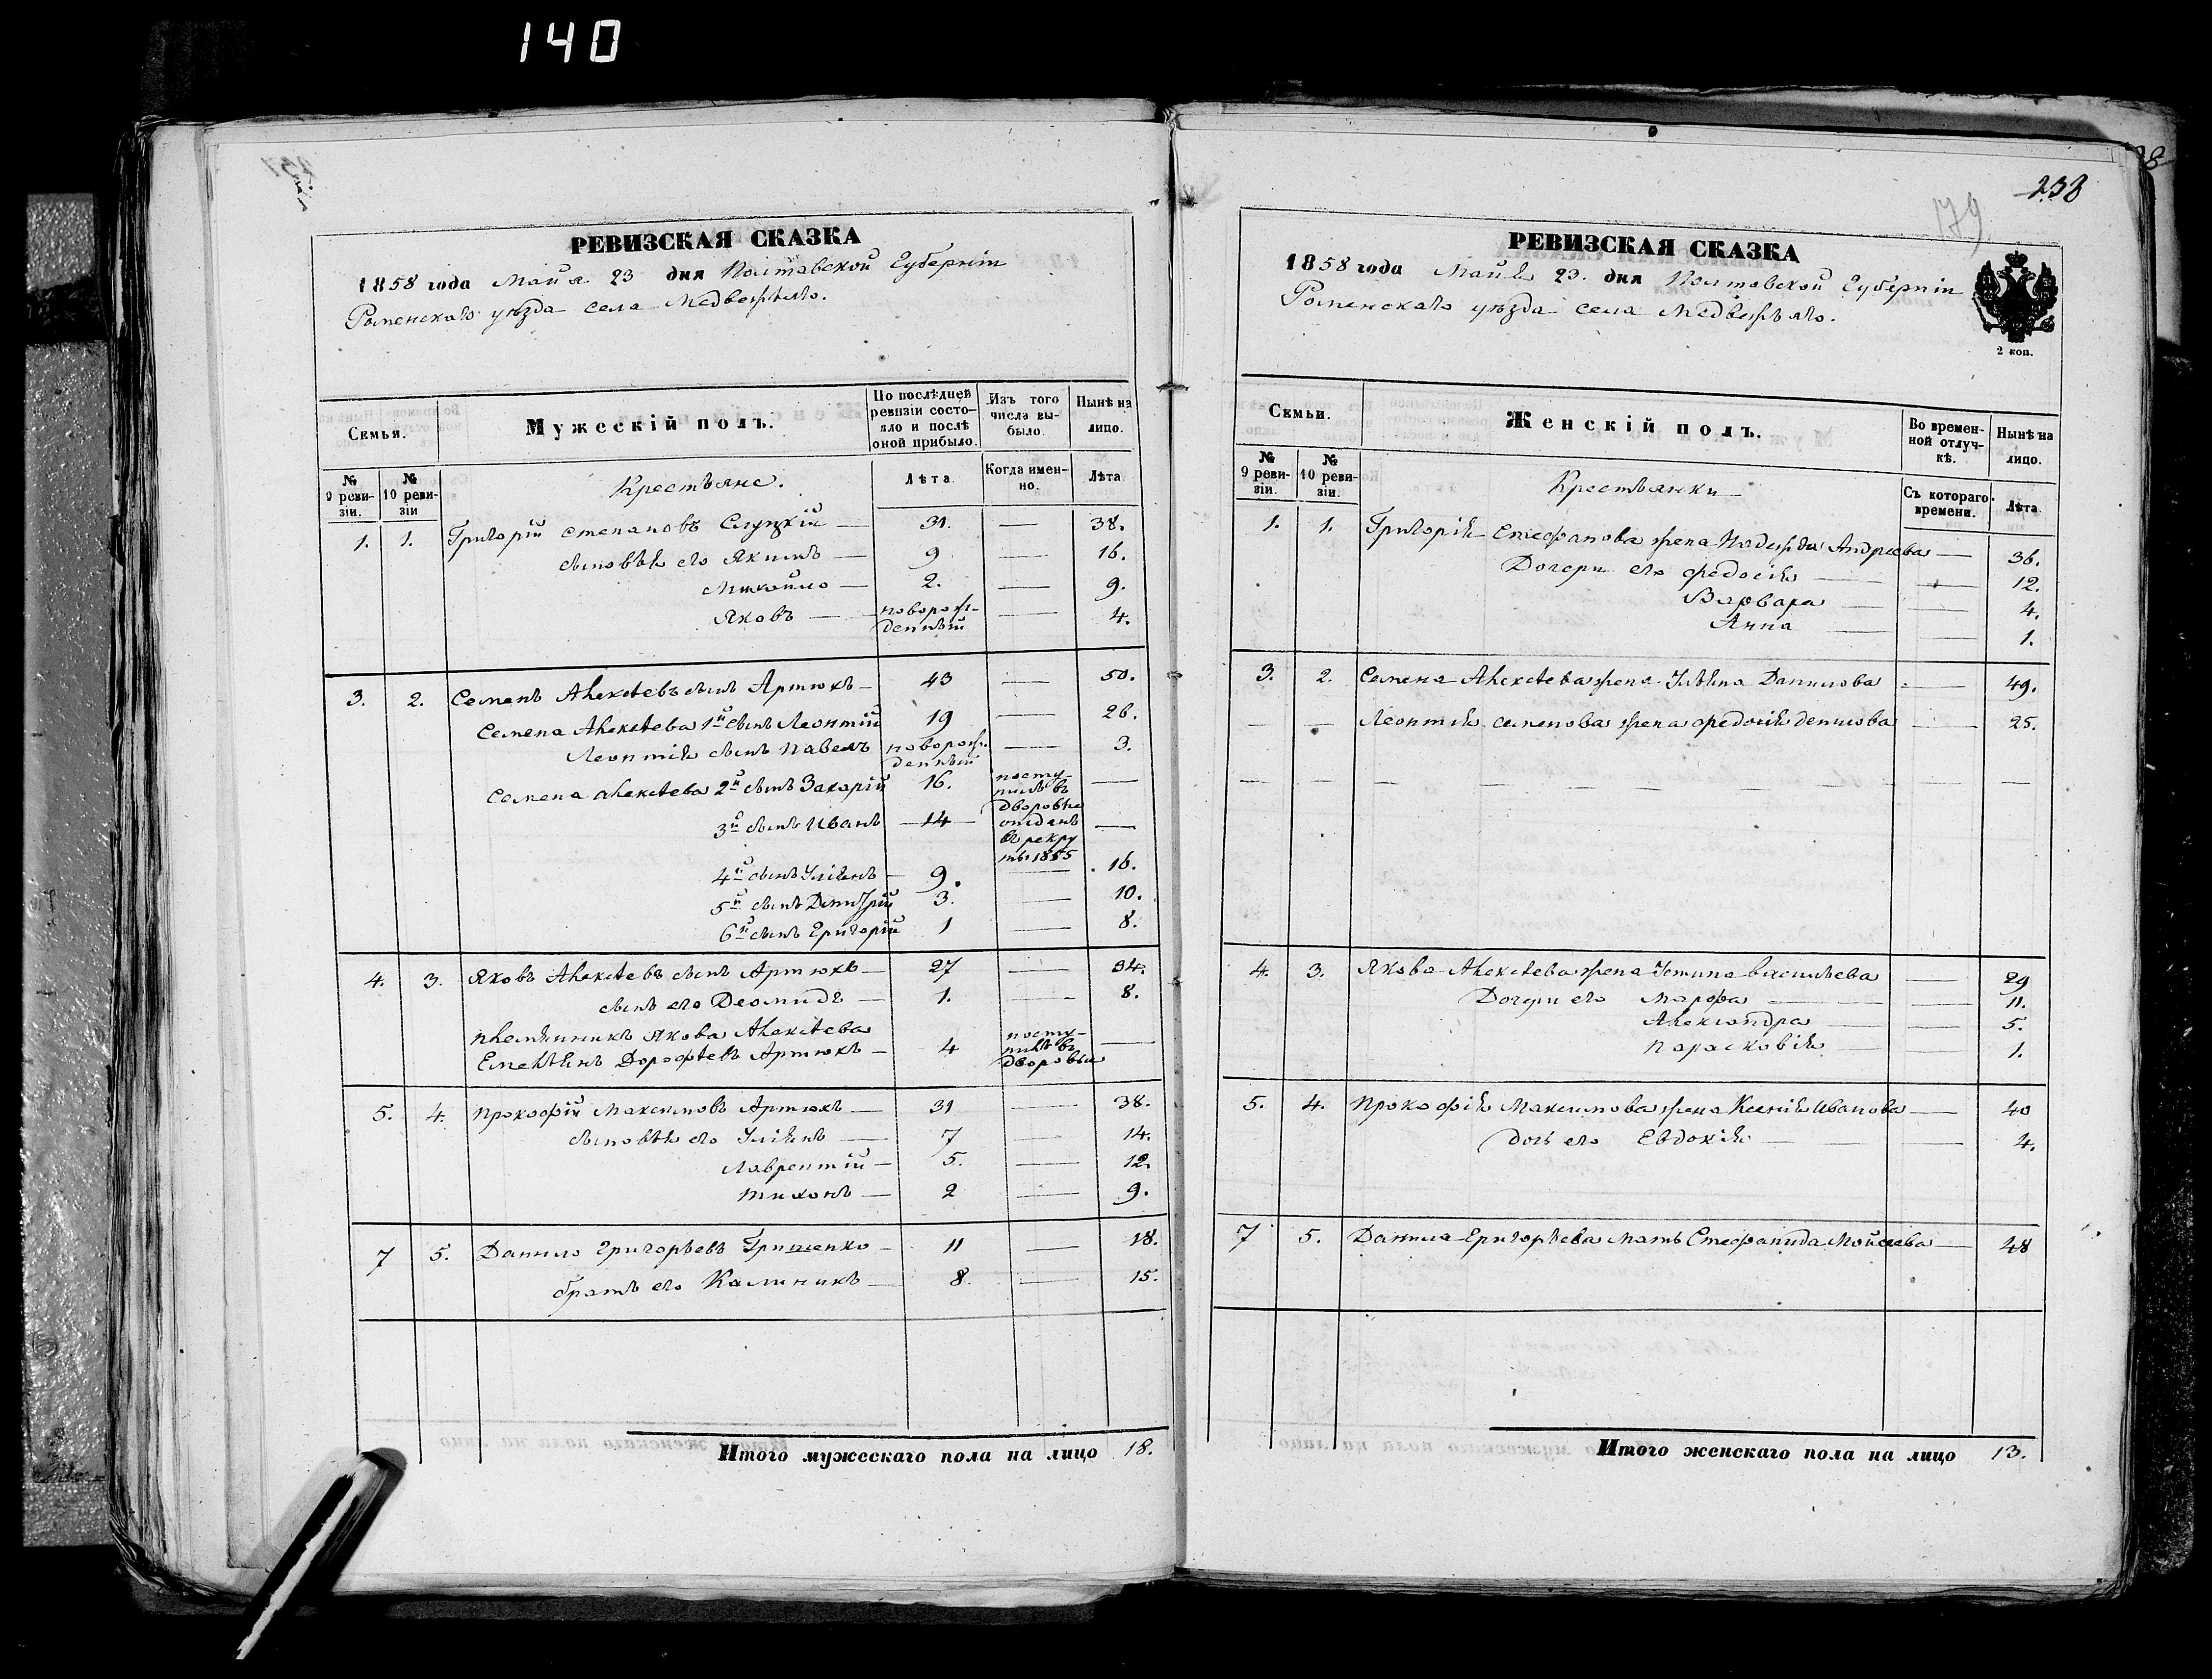 140
РЕВИЗСКАЯ СКАЗКА
1858 года Майя 23 дня Полтавской Губерніи
Роменскаго уѣзда села Медвежяго.
Семьи.
Мужескій полъ.
По послѣдней ревизіи состояло и послѣ оной прибыло.
Изъ того числа выбыло.
Нынѣ на лицо.
№ 9 ревизіи.
№ 10 ревизіи
Крестьяне.
Лѣта
Когда именно.
Лѣта
1. 1. Григорій Степановъ Слуцкій — 31. — 38.
сыновья его Якимъ — 9 — 16.
Михайло — 2. — 9.
Яковъ — новорожденный — 4.
3. 2. Семенъ Алексѣевъ сынъ Артюхъ — 43 — 50.
Семена Алексѣева 1й сынъ Леонтій 19 — 26.
Леонтія сынъ Павелъ новорожденный — 3.
Семена Алексѣева 2й сынъ Захарій 16. поступилъ въ дворовые —
3й сынъ Иванъ — 14 — отданъ въ рекруты 1855 —
4й сынъ Уліянъ — 9. — 16.
5й сынъ Дмитрій 3. — 10.
6й сынъ Григорій 1 — 8.
4. 3. Яковъ Алексѣевъ сынъ Артюхъ — 27 — 34.
сынъ его Деомидъ — 1. — 8.
племянникъ Якова Алексѣева
Емельянъ Дорофѣевъ Артюхъ — 4 поступилъ въ дворовые —
5. 4. Прокофій Максимовъ Артюхъ — 31 — 38.
сыновья его Уліянъ — 7 — 14.
Лаврентій — 5. — 12.
Тихонъ — 2 — 9.
7 5. Данило Григорьевъ Грищенко — 11 — 18.
братъ его Калиникъ — 8. — 15.
Итого мужескаго пола на лицо 18.
238
179
РЕВИЗСКАЯ СКАЗКА
1858 года Майя 23. дня Полтавской Губерніи
Роменскаго уѣзда села Медвежяго.
2 коп.
Семьи.
Женскій полъ.
Во временной отлучкѣ.
Нынѣ на лицо.
№ 9 ревизіи.
№ 10 ревизіи.
Крестьянки
Съ котораго времени.
Лѣта
1. 1. Григорія Стефанова жена Надежда Андреева — 36.
Дочери его Федосія — — 12.
Варвара — — 4.
Анна — — 1.
3. 2. Семена Алексѣева жена Ульяна Данилова — 49.
— — Леонтія Семенова жена Федосія Денисова — 25.
4. 3. Якова Алексѣева жена Устина Васильева — 29
Дочери его Марфа — — 11.
Александра — — 5.
Параскевія — — 1.
5. 4. Прокофія Максимова жена Ксенія Иванова — 40
дочь его Евдокія — — 4.
7 5. Данила Григорьева мать Стефанида Мойсеева — 48
Итого женскаго пола на лицо 13.